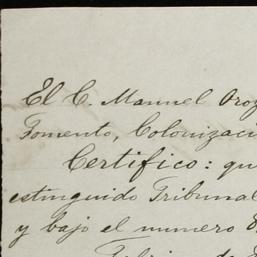 El C. Manuel Oroz
Fomento, Colonizaci
Certifico: qu
estinguido Tribunal
y bajo el numero